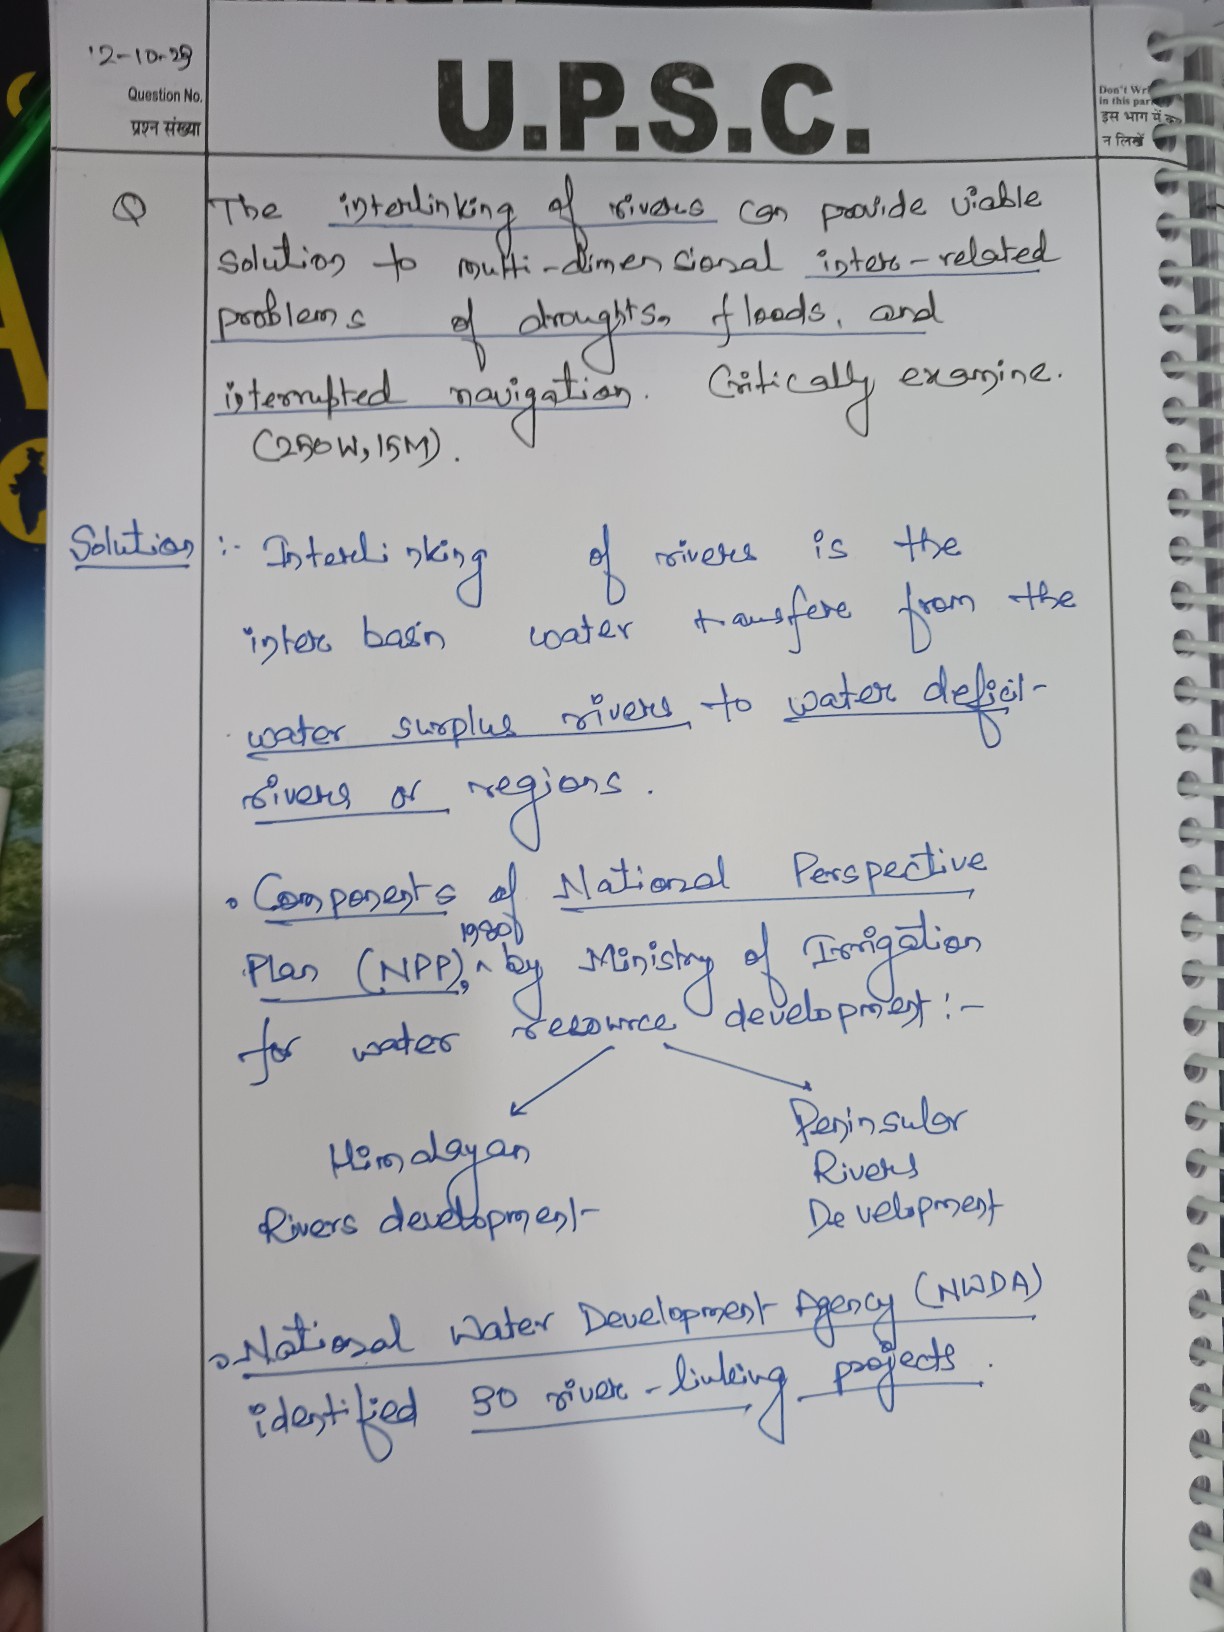 12-10-23
Question No.
प्रश्न संख्या
U.P.S.C.
Don't Wri
in this par
इस भाग में कु
न लिखें
Q The interlinking of rivers can provide viable
solution to multi-dimensional inter-related
problems of droughts, floods, and
interrupted navigation. Critically examine.
(250W, 15M).
Solution :- Interlinking of rivers is the
inter basin water transfere from the
water surplus rivers to water deficit
rivers or regions.
• Components of National Perspective
Plan (NPP), 1980 by Ministry of Irrigation
for water resource development :-
Himalayan
Rivers development
Peninsular
Rivers
Development
• National Water Development Agency (NWDA)
identified 30 river-linking projects.